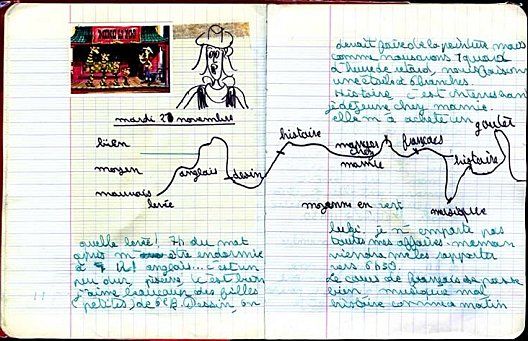 mardi 27 novembre
bien
moyen
mauvais
levée
anglais
dessin
quelle levée! 7h du mat
après m'être endormie
à 9 h! anglais... c'est un
peu dur, piscine, c'est bon
j'aime beaucoup des filles
(petites) de Dessin, on
devait faire de la peinture mais
comme nous avons 1 quart
d'heure de retard, nous faisons
une étoile à branches.
Histoire, c'est intéressant
je déjeune chez mamie.
elle m'a acheté un
goûter
histoire
manger
chez
mamie
français
histoire
moyenne en vert
musique
je n'emporte pas
toutes mes affaires. maman
viendra me les rapporter
vers 6h30.
Le cours de français se passe
bien, musique mal
histoire comme ce matin